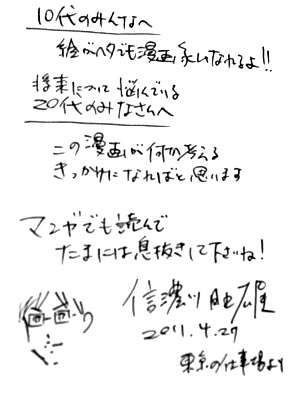 10代のみんなへ
絵がヘタでも漫画家になれるよ!!
将来について悩んでいる
20代のみなさんへ
この漫画が何か考える
きっかけになればと思います
マンガでも読んで
たまには息抜きして下さいね!
信濃川日出雄
2011.4.27
東京の仕事場より